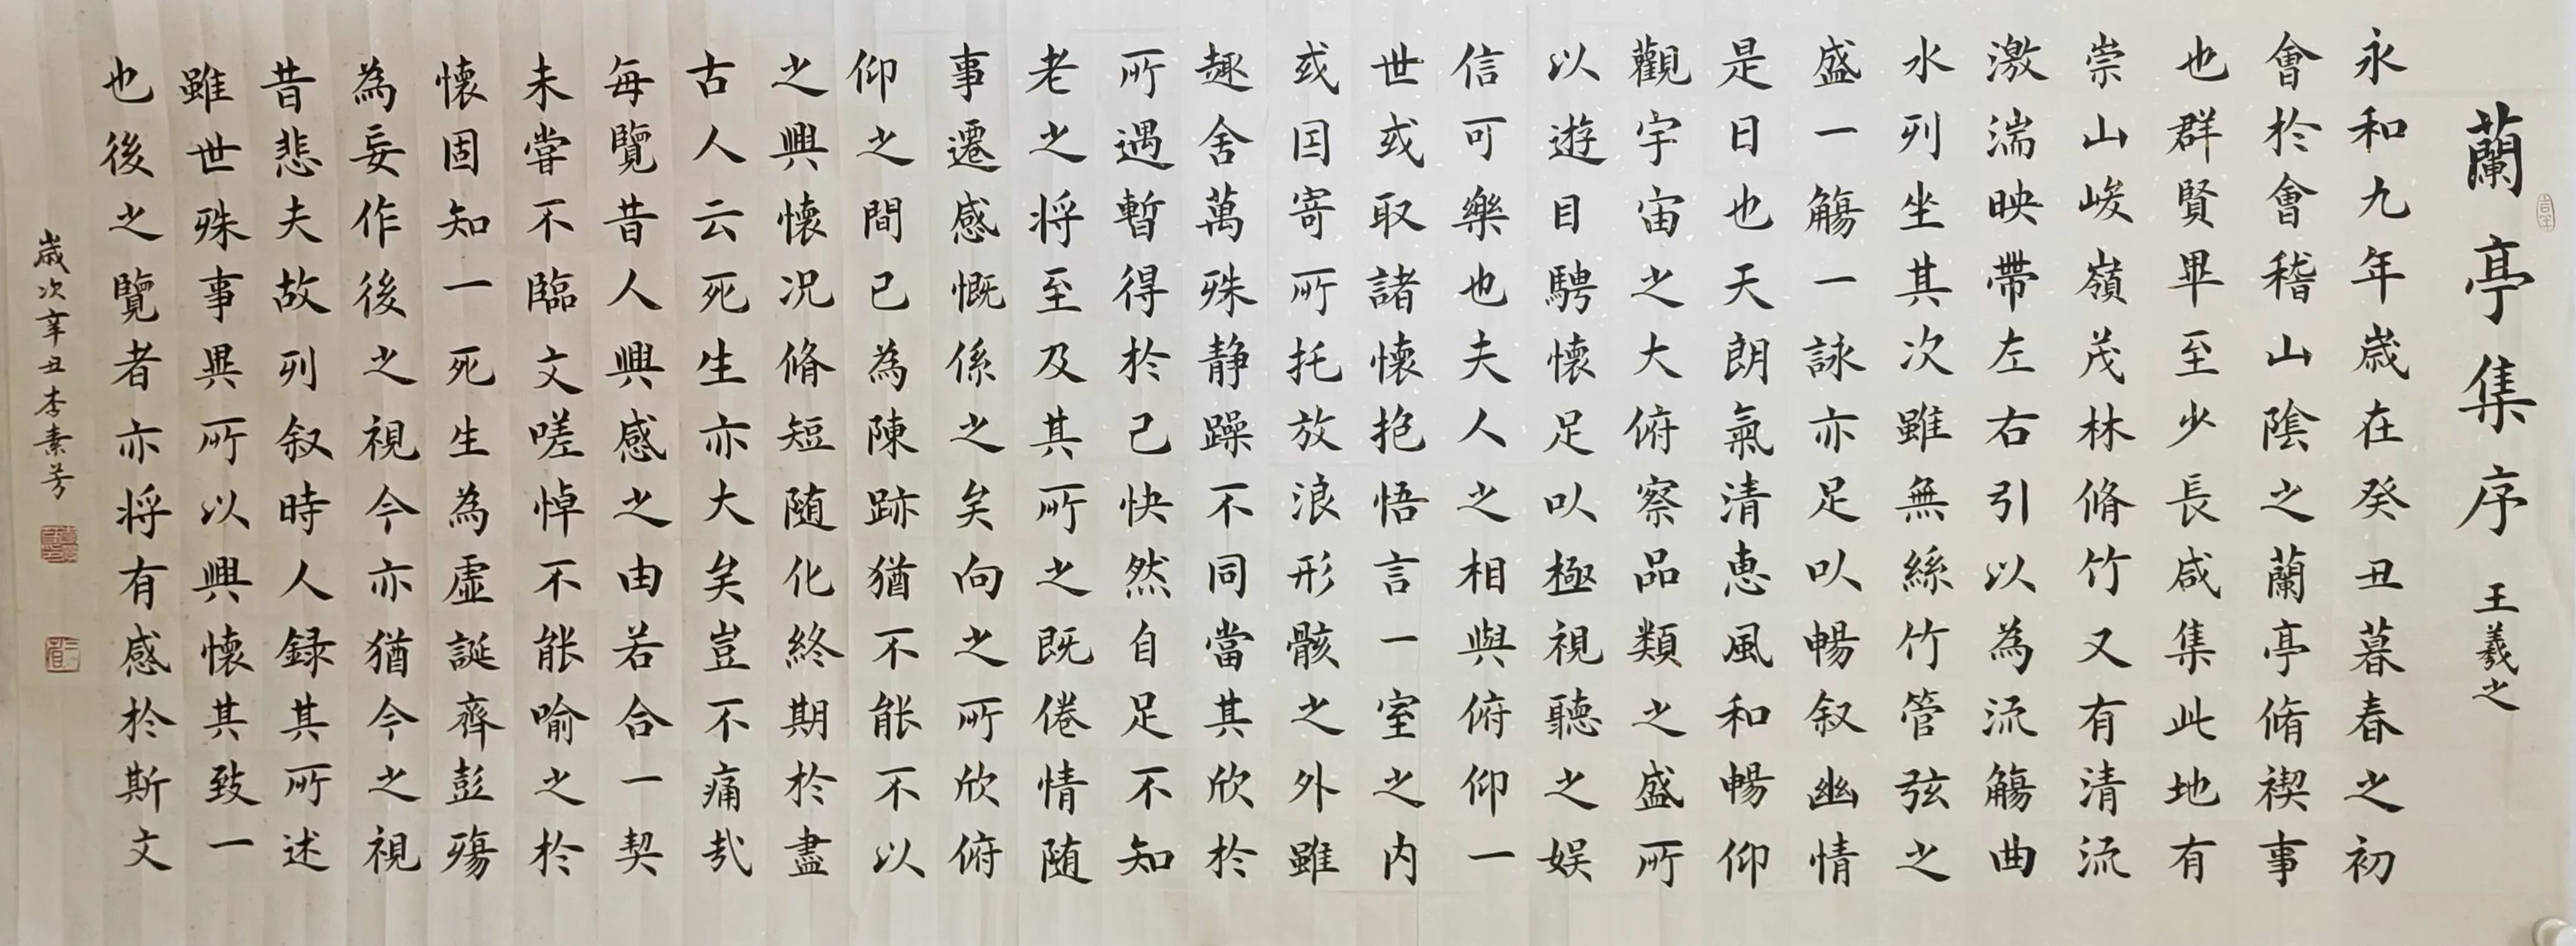 蘭亭集序 王羲之
永和九年歲在癸丑暮春之初
會於會稽山陰之蘭亭脩禊事
也群賢畢至少長咸集此地有
崇山峻嶺茂林脩竹又有清流
激湍映帶左右引以為流觴曲
水列坐其次雖無絲竹管弦之
盛一觴一詠亦足以暢叙幽情
是日也天朗氣清惠風和暢仰
觀宇宙之大俯察品類之盛所
以遊目騁懷足以極視聽之娛
信可樂也夫人之相與俯仰一
世或取諸懷抱悟言一室之内
或因寄所托放浪形骸之外雖
趣舍萬殊静躁不同當其欣於
所遇暫得於己快然自足不知
老之将至及其所之既倦情随
事遷感慨係之矣向之所欣俯
仰之間已為陳跡猶不能不以
之興懷况脩短随化終期於盡
古人云死生亦大矣豈不痛哉
每覽昔人興感之由若合一契
未嘗不臨文嗟悼不能喻之於
懷固知一死生為虛誕齊彭殤
為妄作後之視今亦猶今之視
昔悲夫故列叙時人録其所述
雖世殊事異所以興懷其致一
也後之覽者亦将有感於斯文
歲次辛丑李素芳